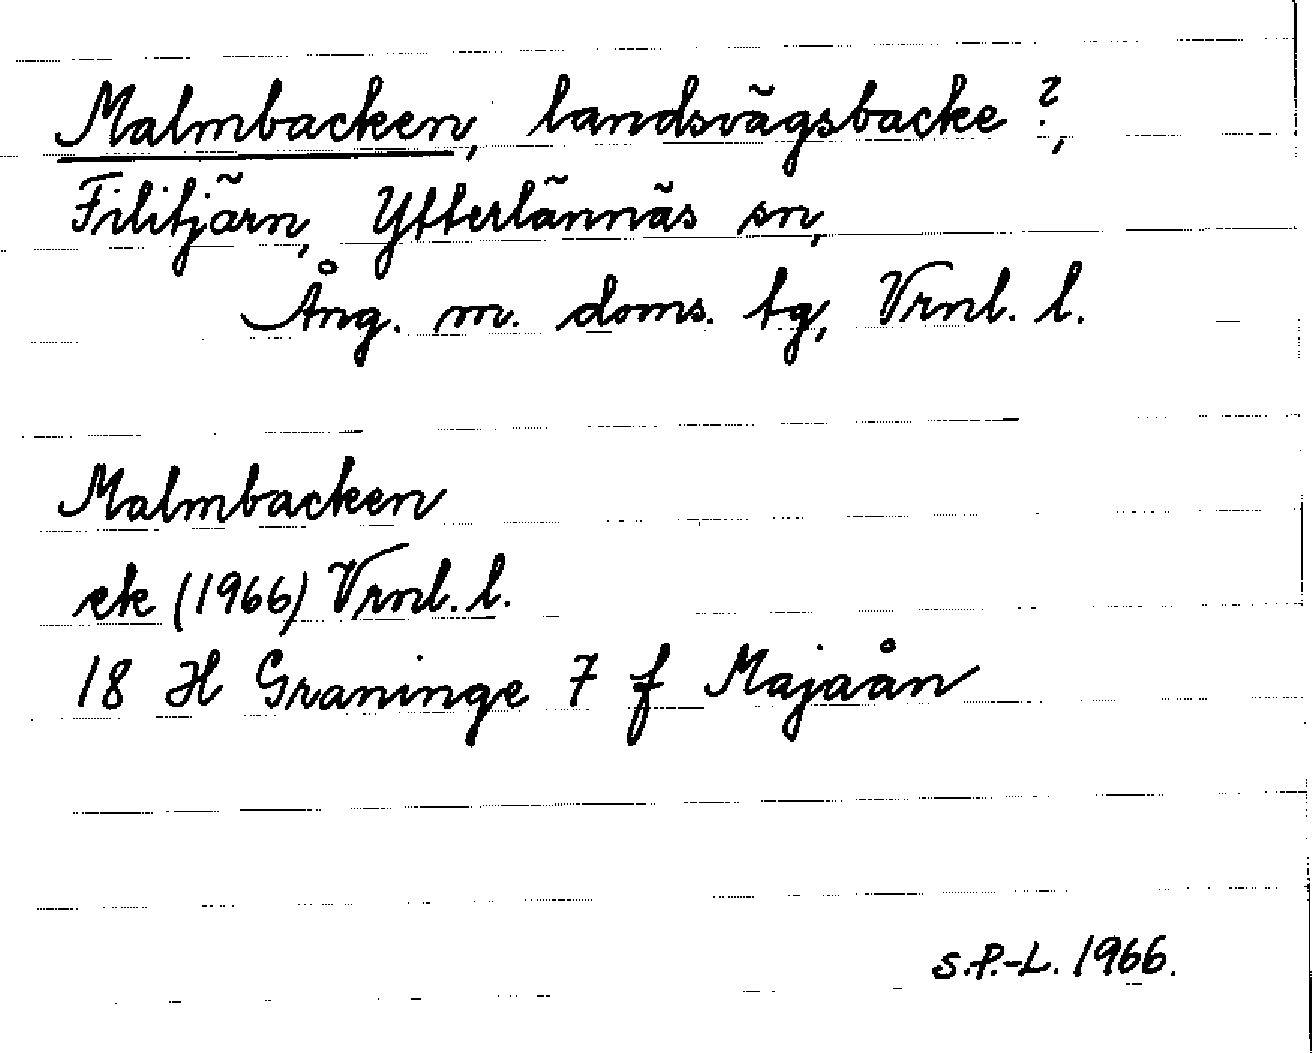 Malmbacken, landsvägsbacke?,
Filitjärn, Ytterlännäs sn,
Ång. m. doms. tg, Vrnl. l.
Malmbacken
ek (1966) Vrnl. l.
18 H Graninge 7 f Majaån
S.P.-L. 1966.